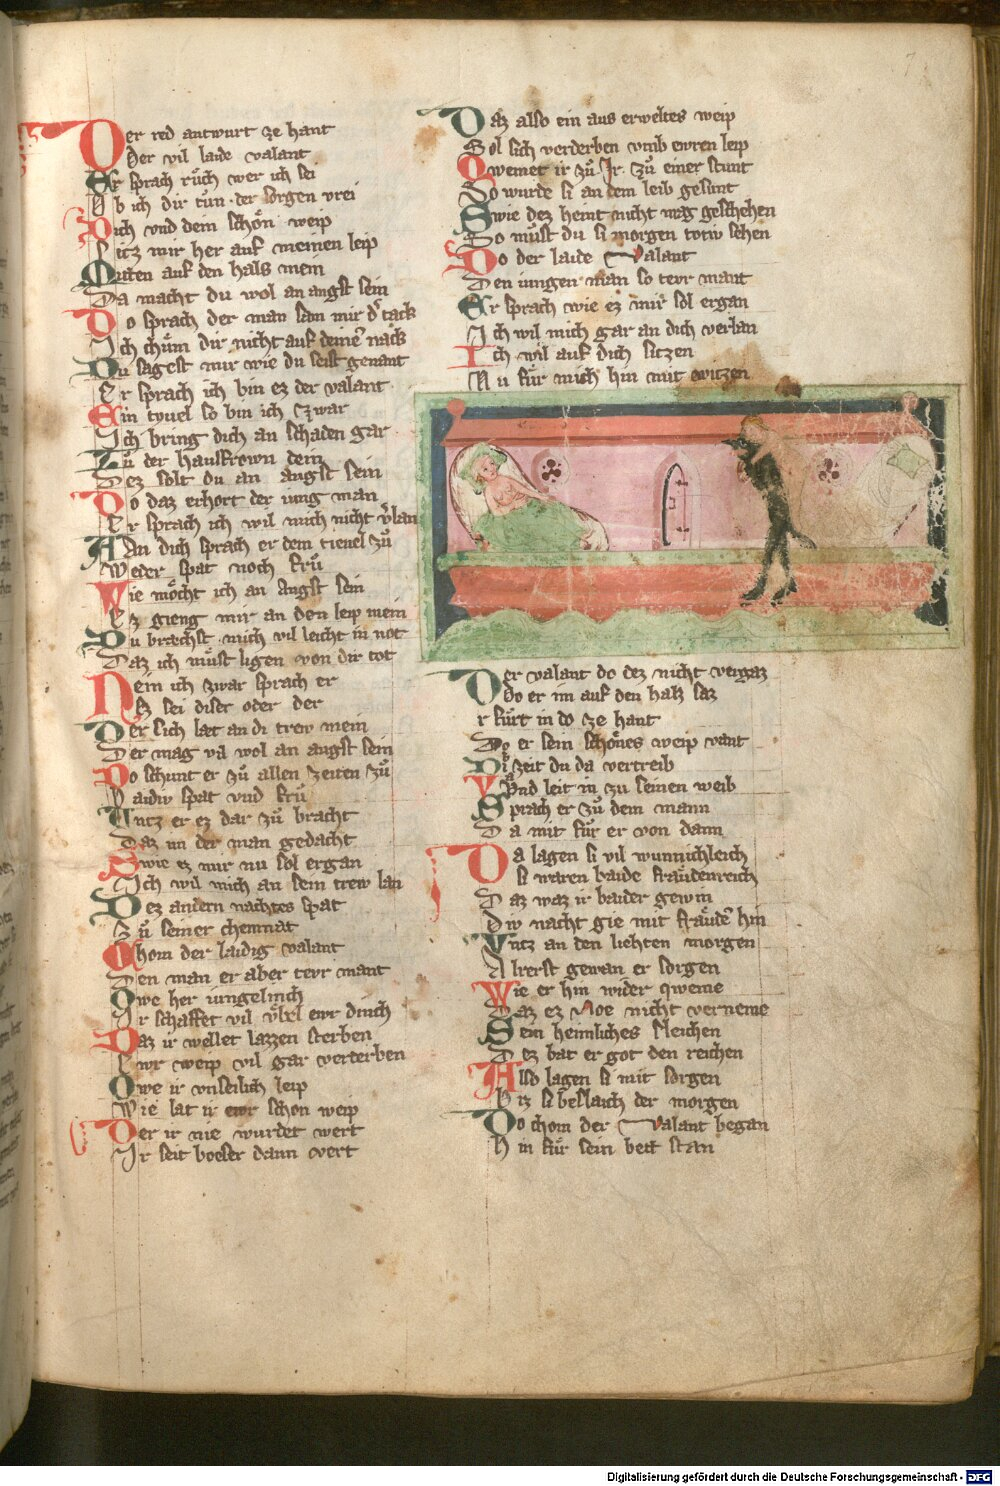 Der red antwurt ze hant
Der vil laide valant
Er sprach růch wer ich sei
Ob ich dir tůn der sorgen vrei
Dich vnd dein schön weip
Sitz mir her auf meinen leip
Muten auf den hals mein
Da macht du wol an angst sein
Do sprach der man sam mir d' tack
Ich chům dir nicht auf deinē nack
Du sagest mir wie du seist genant
Er sprach ich bin ez der valant
Ein tyuel so bin ich zwar
Ich bring dich an schaden gar
Zů der hausfrown dein
Dez solt du an angst sein
Do daz erhort der iung man
Er sprach ich wil mich nicht v'lan
An dich sprach er dem tieuel zů
Weder spat noch frů
Wie möcht ich an angst sein
Ez gieng mir an den leip mein
Du bræchst mich vil leicht in not
Daz ich můst ligen von dir tot
Nein ich zwar sprach er
Ez sei diser oder der
Der sich læt an di trew mein
Der mag vil wol an angst sein
Do schunt er zů allen zeiten zů
spat vnd frů
Untz er ez dar zů bracht
Daz im der man gedacht
Swie ez mir nu sol ergan
Ich wil mich an sein trew lan
Dez andern nachtes spat
Zů seiner chemnat
Chom der laidig valant
Den man er aber tevr mant
Owe her iungelinch
Ir schaffet vil vbel ewr dinch
Daz ir wellet lazzen sterben
Ewr weip vil gar verderben
Owe ir vnselich leip
Wie lat ir ewr schon weip
Der ir nie wurdet wert
Ir seit boeser dann vert
Daz also ein aus erweltes weip
Sol sich verderben vmb ewren leip
Qwemet ir zů Jr zů einer stunt
So wurde si an dem leib gesunt
Swie dez heint nicht mag geschehen
So můst du si morgen totiv sehen
Do der laide Valant
Den iungen man so tevr mant
Er sprach wie ez mir sol ergan
Ich wil mich gar an dich verlan
Ich wil auf dich sitzen
Nu fůr mich hin mit witzen
Der valant do dez nicht vergaz
Do er im auf den halz saz
r fůrt in do ze hant
Do er sein schönes weip vant
Di zeit du da vertreib
Vnd leit in zu seinen weib
Sprach er zů dem mann
Da mit fůr er von dann
Da lagen si vil wunnichleich
Si waren baide fräudenreich
Daz waz ir baider gewin
Div nacht gie mit fräudē hin
Vntz an den liehten morgen
Alrerst gewan er sorgen
Wie er hin wider qweme
Daz ez Noe nicht verneme
Sein heimliches sleichen
Dez bat er got den reichen
Also lagen si mit sorgen
Biz si beslaich der morgen
Do chom der Valant began
Hin fůr sein bett stan
Digitalisierung gefördert durch die Deutsche Forschungsgemeinschaft - DFG